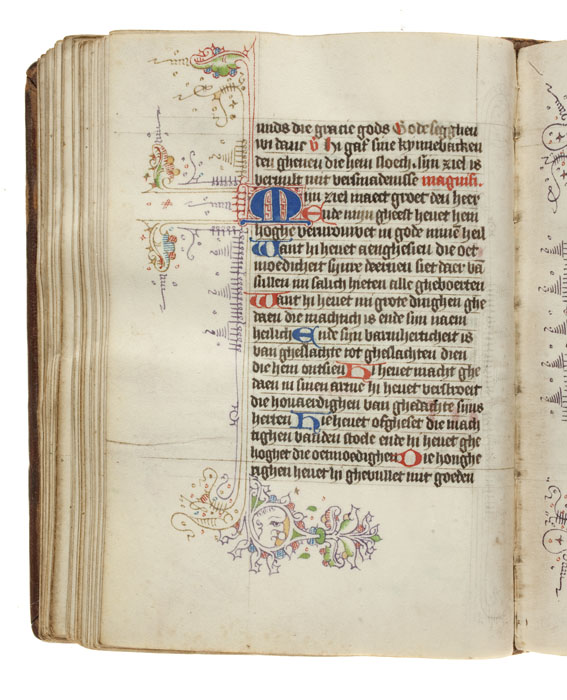 mids die gracie gods Gode segghen
wi danc v̄ Hi gaf sine kynnebacken
den ghenen die hem sloech. sijn ziel is
vervult mit versmadenisse magnifi.
Min ziel maect groet den heer
Ende mijn gheest hevet hem
hoghe vervrouwet in gode minē heil
Want hi hevet aenghesien die oet
moedicheit synre deernen siet daer va
sullen mi salich hieten alle gheboerten
Want hi hevet mi grote dinghen ghe
daen die machtich is ende sijn naem
heilich Ende sijn barmherticheit is
van gheslachte tot gheslachten dien
die hem ontsien Hi hevet macht ghe
daen in sinen arme hi hevet verstroeit
die hovaerdighen van ghedachte sinus
herten Hie hevet ofgheset die mach
tighen vanden stoele ende hi hevet ghe
hoghet die oetmoedighen Die honghe
righen hevet hi ghevullet mit goeden